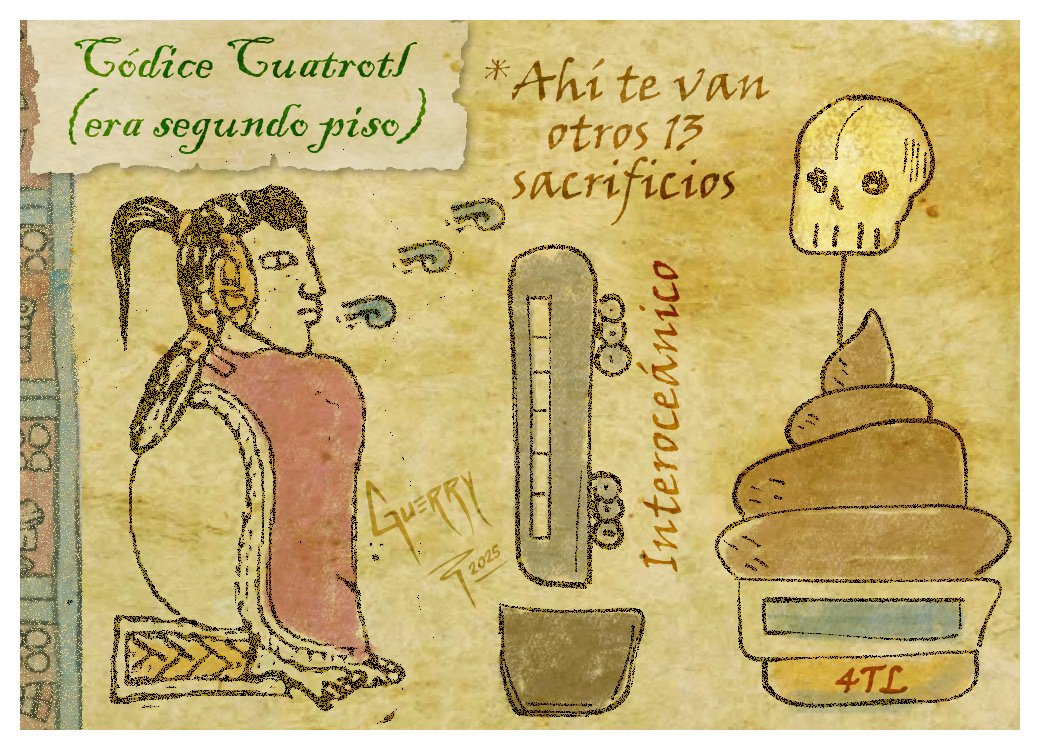 Códice Cuatrotl
(era segundo piso)
*Ahí te van
otros 13
sacrificios
Interoceánico
GUERRY
2025
4TL